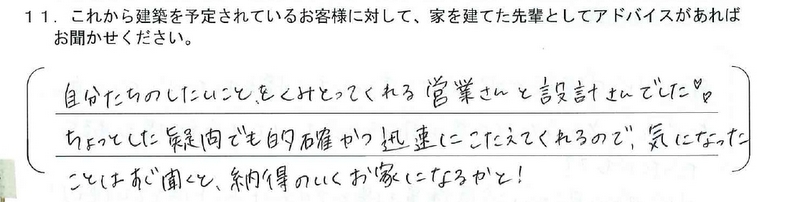 11．これから建築を予定されているお客様に対して、家を建てた先輩としてアドバイスがあれば
お聞かせください。
自分たちのしたいことをくみとってくれる営業さんと設計さんでした♡♡
ちょっとした疑問でも的確かつ迅速にこたえてくれるので、気になった
ことは聞くと、納得のいくお家になるかと！